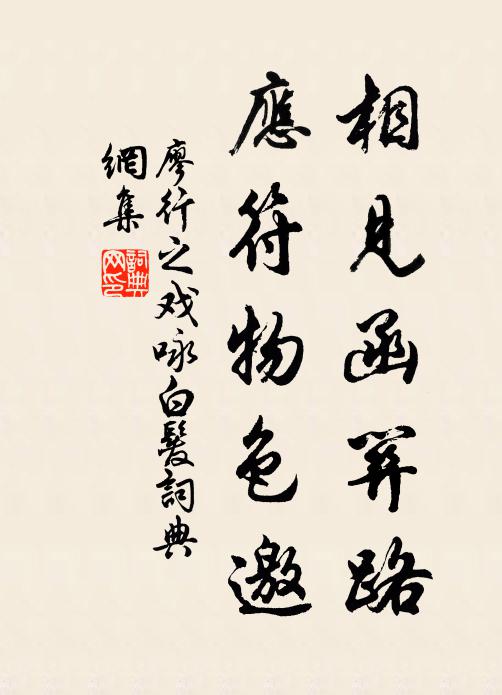 相見函關路
應符物色邀
廖行之戏咏白髮詞典
網集
詞典
网印